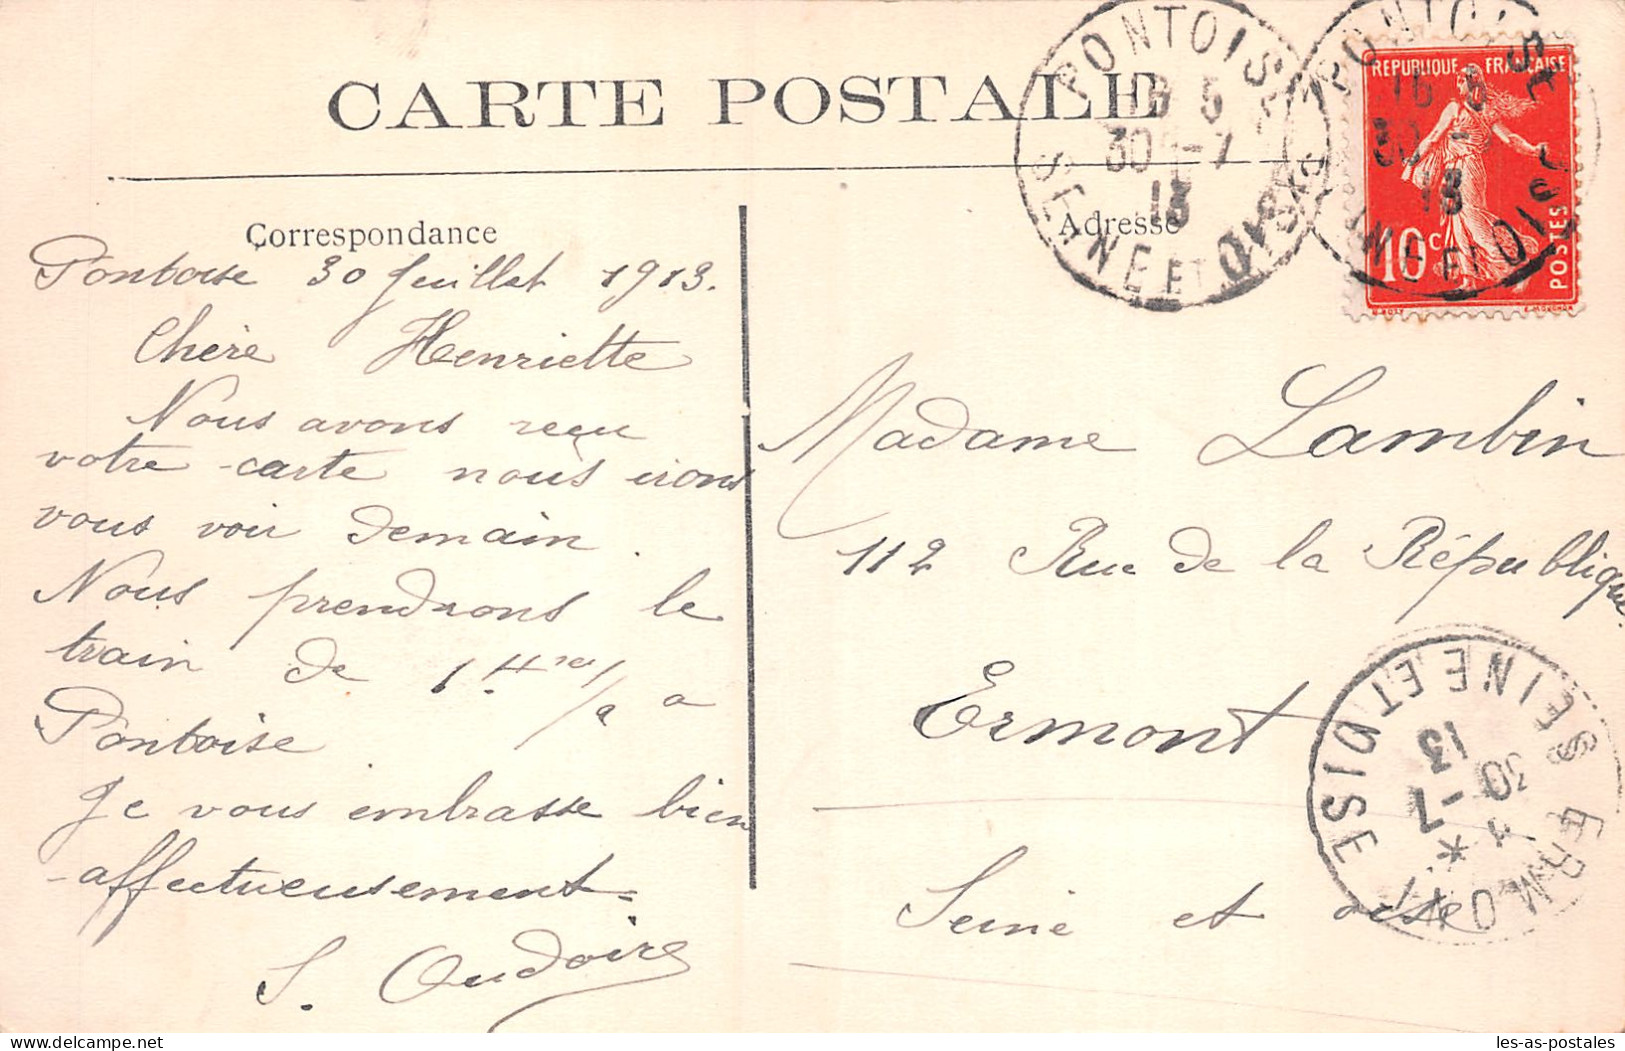 CARTE POSTALE
Correspondance
Pontoise 30 Juillet 1913.
Chère Henriette
Nous avons reçu
votre carte nous irons
vous voir demain.
Nous prendrons le
train de 1 Hres 1/2 a
Pontoise
Je vous embrasse bien
affectueusement
S. Oudoire
Adresse
Madame Lambin
112 Rue de la République
Ermont
Seine et oise
PONTOISE
16 5
30 -7
13
SEINE ET OISE
PONTOISE
16 5
30 -
13
SEINE ET OISE
REPUBLIQUE FRANÇAISE
10 c
POSTES
ERMONT
30 -7
13
SEINE ET OISE
les-as-postales